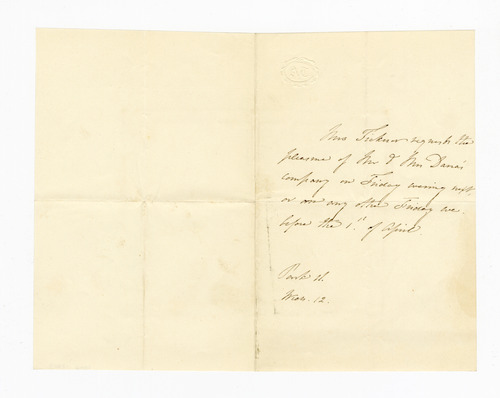 Mrs Ticknor requests the
pleasure of Mr & Mrs Dana's
company on Friday evening next,
or on any other Friday eve.
before the 1st of April.
Park St.
12.